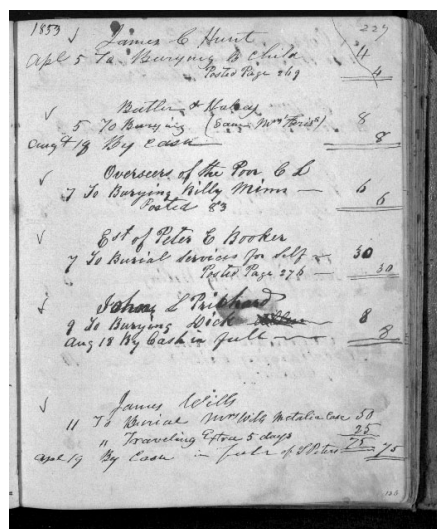 1853 227
James C Hunt
Apl 5 To Burying B Child 4
Posted Page 269 4
Butler &
5 To Burying (Eame Mrs ) 8
Augt 19 By Cash 8
Overseers of the Poor C L
7 To Burying Milly Mims — 6
Posted 83 6
Est of Peter C Booker
7 To Burial Services for Self — 30
Posted Page 276 — 30
L Prichard
9 To Burying Dick 8
Aug 18 By Cash in full 8
James Wills
11 To Burial Mrs Wills Metalic Case 50
" Traveling Extra 5 days 25
75
Apl 19 By Cash in full of S Peters 75